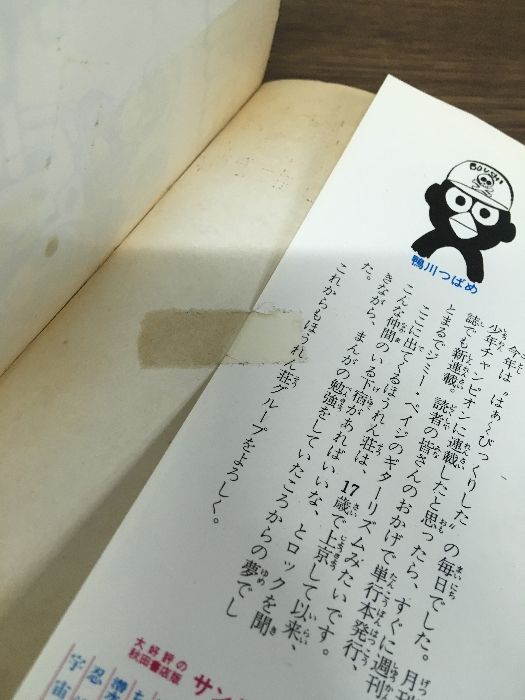 BOUSHI
鴨川つばめ
今年は〝はぁ〜びっくりした〟の毎日でした。月刊
少年チャンピオンに連載したと思ったら、すぐに週刊
誌でも新連載。読者の皆さんのおかげで単行本発行、
とまるでジミー・ペイジのギターリズムみたいです。
ここに出てくるほうれん荘は、17歳で上京して以来、
こんな仲間のいる下宿があればいいな、とロックを聞
きながら、まんがの勉強をしていたころからの夢でし
た。
これからもほうれん荘グループをよろしく。
大好評の
秋田書店版
サン
忍
宇宙